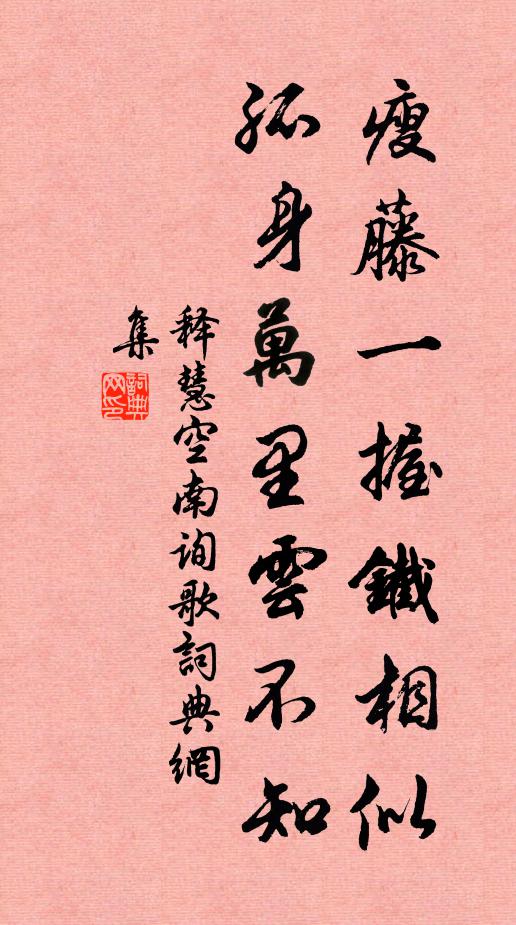 瘦藤一握鐵相似
孤身萬里雲不知
释慧空南询歌詞典網
集
詞典网印